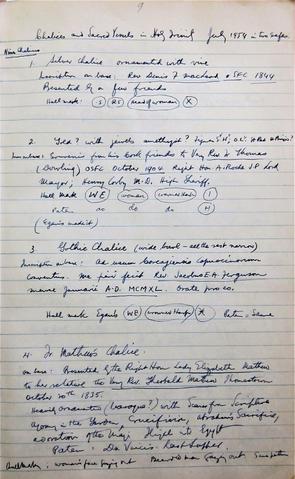 9
Chalices and Sacred Vessels in Holy Trinity July 1954 in two safes
Nine Chalices
1. Silver Chalice ornamented with vine
Inscription on base: Rev Denis F Macleod OSFC 1844
Presented by a few friends
Hall mark: S RS head of woman X
2. Gold? with jewels amethyst?
Inscription: Souvenir from his Cork friends to Very Rev Fr Thomas
(Dowling) OSFC October 1904 Right Hon A. Roche J P Lord
Mayor; Henry Corby M.D. High Sheriff,
Hall Mark WE woman crowned harp I
Paten do do do H
(Egans made it)
3. Gothic Chalice (wide base - all the rest narrow)
Inscription on base: Ad usum Corcagiensis Capuccinorum
Conventus. Me fieri fecit Rev Jacobus E.A. Ferguson
mense Januarii A.D. MCMXL. Orate pro eo.
Hall mark Egans WE crowned harp X Paten, Same
4. Fr Mathew's Chalice.
on base: Presented by the Right Hon Lady Elizabeth Mathew
to her relative the Very Rev. Theobald Mathew Thomastown
October 20th 1835.
Heavily ornamented (baroque?) with Scenes from Scripture
Agony in the Garden, Crucifixion, Abraham's Sacrifice,
adoration of the Magi Flight into Egypt
Paten: Da Vinci's Last Supper.
Hallmarks: woman's face Bearded man